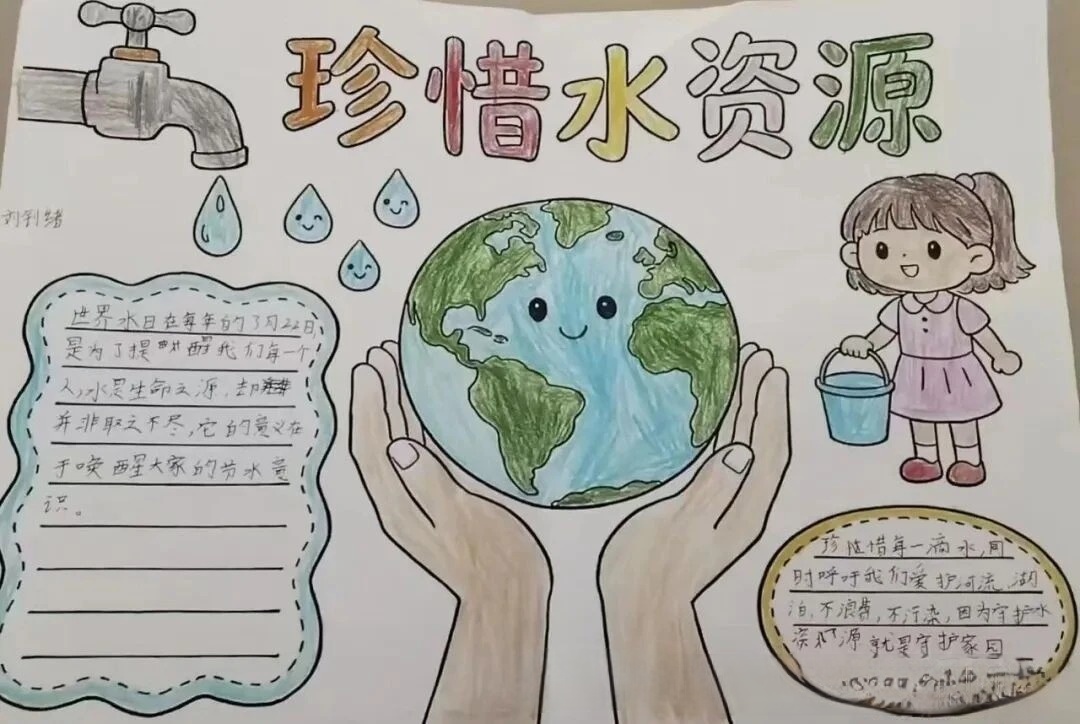 珍惜水资源
世界水日在每年的3月22日,
是为了提醒我们每一个
人,水是生命之源,却
并非取之不尽,它的意义在
于唤醒大家的节水意
识。
珍惜每一滴水,同
时呼吁我们爱护河流、湖
泊,不浪费,不污染,因为守护水
资源就是守护家园